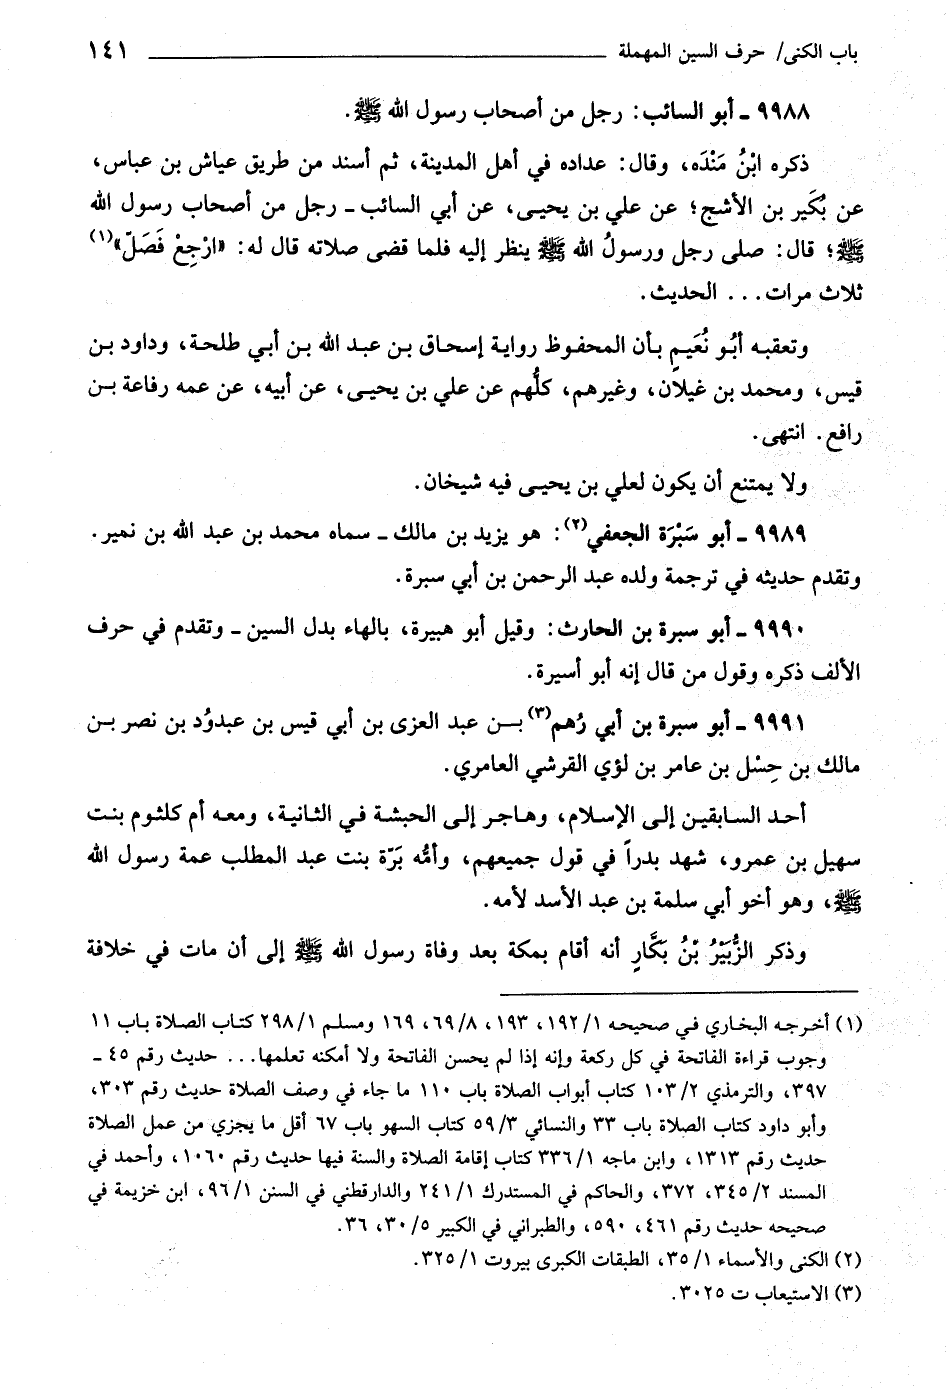 باب الكنى/ حرف السين المهملة ١٤١
٩٩٨٨ ـ أبو السائب: رجل من أصحاب رسول الله ﷺ.
ذكره ابْنُ مَنْدَه، وقال: عداده في أهل المدينة، ثم أسند من طريق عياش بن عباس،
عن بُكَير بن الأشج؛ عن علي بن يحيى، عن أبي السائب ـ رجل من أصحاب رسول الله
ﷺ؛ قال: صلى رجل ورسولُ الله ﷺ ينظر إليه فلما قضى صلاته قال له: «ارْجِعْ فَصَلّ»(١)
ثلاث مرات... الحديث.
وتعقبه أَبُو نُعَيمٍ بأن المحفوظ رواية إسحاق بن عبد الله بن أبي طلحة، وداود بن
قيس، ومحمد بن غيلان، وغيرهم، كلُّهم عن علي بن يحيى، عن أبيه، عن عمه رفاعة بن
رافع. انتهى.
ولا يمتنع أن يكون لعلي بن يحيى فيه شيخان.
٩٩٨٩ ـ أبو سَبْرَة الجعفي(٢): هو يزيد بن مالك ـ سماه محمد بن عبد الله بن نمير.
وتقدم حديثه في ترجمة ولده عبد الرحمن بن أبي سبرة.
٩٩٩٠ ـ أبو سبرة بن الحارث: وقيل أبو هبيرة، بالهاء بدل السين ـ وتقدم في حرف
الألف ذكره وقول من قال إنه أبو أسيرة.
٩٩٩١ ـ أبو سبرة بن أبي رُهم(٣) بن عبد العزى بن أبي قيس بن عبدوُد بن نصر بن
مالك بن حِسْل بن عامر بن لؤي القرشي العامري.
أحد السابقين إلى الإسلام، وهاجر إلى الحبشة في الثانية، ومعه أم كلثوم بنت
سهيل بن عمرو، شهد بدراً في قول جميعهم، وأمُّه بَرّة بنت عبد المطلب عمة رسول الله
ﷺ، وهو أخو أبي سلمة بن عبد الأسد لأمه.
وذكر الزُّبَيْرُ بْنُ بَكَّارٍ أنه أقام بمكة بعد وفاة رسول الله ﷺ إلى أن مات في خلافة
(١) أخرجه البخاري في صحيحه ١/ ١٩٢، ١٩٣، ٨/ ٦٩، ١٦٩ ومسلم ١/ ٢٩٨ كتاب الصلاة باب ١١
وجوب قراءة الفاتحة في كل ركعة وإنه إذا لم يحسن الفاتحة ولا أمكنه تعلمها... حديث رقم ٤٥ ـ
٣٩٧، والترمذي ٢/ ١٠٣ كتاب أبواب الصلاة باب ١١٠ ما جاء في وصف الصلاة حديث رقم ٣٠٣،
وأبو داود كتاب الصلاة باب ٣٣ والنسائي ٣/ ٥٩ كتاب السهو باب ٦٧ أقل ما يجزي من عمل الصلاة
حديث رقم ١٣١٣، وابن ماجه ١/ ٣٣٦ كتاب إقامة الصلاة والسنة فيها حديث رقم ١٠٦٠، وأحمد في
المسند ٢/ ٣٤٥، ٣٧٢، والحاكم في المستدرك ١/ ٢٤١ والدارقطني في السنن ١/ ٩٦، ابن خزيمة في
صحيحه حديث رقم ٤٦١، ٥٩٠، والطبراني في الكبير ٥/ ٣٠، ٣٦.
(٢) الكنى والأسماء ١/ ٣٥، الطبقات الكبرى بيروت ١/ ٣٢٥.
(٣) الاستيعاب ت ٣٠٢٥.